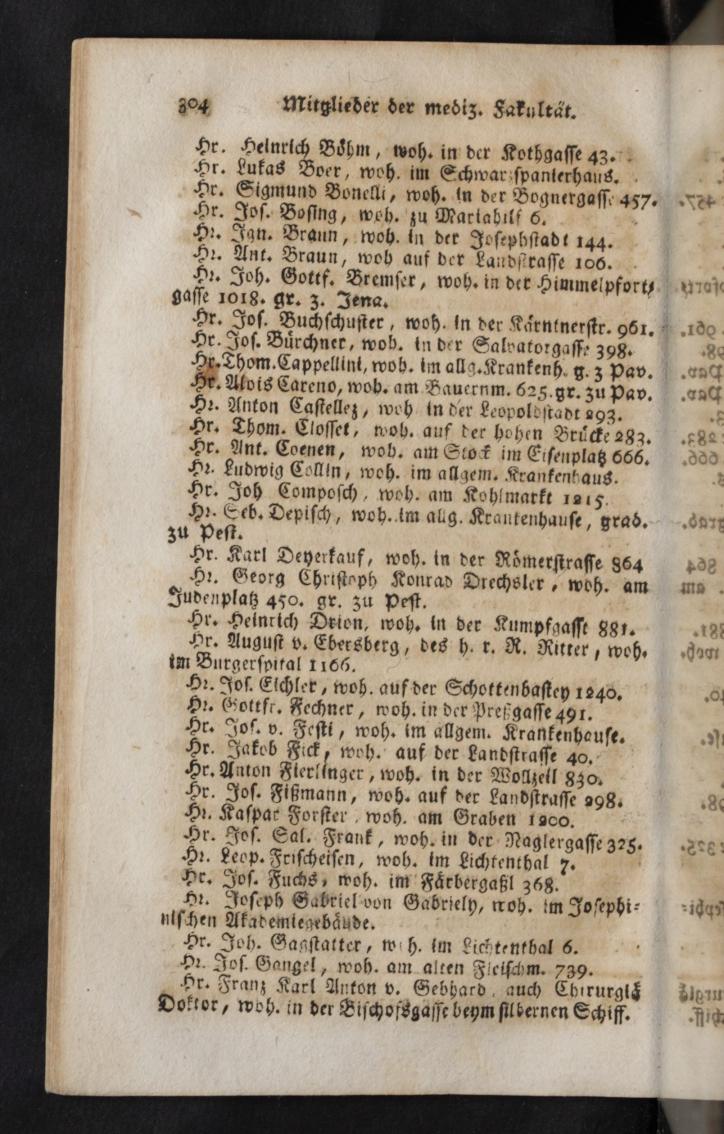 304 Mitglieder der mediz. Fakultät.
Hr. Heinrich Böhm, woh. in der Kothgasse 43.
Hr. Lukas Boer, woh. im Schwarzspanierhaus.
Hr. Sigmund Bonelli, woh. in der Bognergasse 457.
Hr. Jos. Bosing, woh. zu Mariahilf 6.
Hr. Ign. Braun, woh. in der Josephstadt 144.
Hr. Ant. Braun, woh auf der Landstrasse 106.
Hr. Joh. Gottf. Bremser, woh. in der Himmelpfort-
gasse 1018. gr. z. Jena.
Hr. Jos. Buchschuster, woh. in der Kärntnerstr. 961.
Hr. Jos. Bürchner, woh. in der Salvatorgasse 398.
Hr. Thom. Cappellini, woh. im allg. Krankenh. g. z Pav.
Hr. Alois Careno, woh. am Bauernm. 625. gr. zu Pav.
Hr. Anton Castellez, woh in der Leopoldstadt 293.
Hr. Thom. Closset, woh. auf der hohen Brücke 283.
Hr. Ant. Coenen, woh. am Stock im Eisenplatz 666.
Hr. Ludwig Collin, woh. im allgem. Krankenhaus.
Hr. Joh Composch, woh. am Kohlmarkt 1215.
Hr. Seb. Depisch, woh. im allg. Krankenhause, grad.
zu Pest.
Hr. Karl Deyerkauf, woh. in der Römerstrasse 864
Hr. Georg Christoph Konrad Drechsler, woh. am
Judenplatz 450. gr. zu Pest.
Hr. Heinrich Drion, woh. in der Kumpfgasse 881.
Hr. August v. Ebersberg, des h. r. R. Ritter, woh.
im Burgerspital 1166.
Hr. Jos. Eichler, woh. auf der Schottenbastey 1240.
Hr. Gottfr. Fechner, woh. in der Preßgasse 491.
Hr. Jos. v. Festi, woh. im allgem. Krankenhause.
Hr. Jakob Fick, woh. auf der Landstrasse 40.
Hr. Anton Fierlinger, woh. in der Wollzeil 830.
Hr. Jos. Fißmann, woh. auf der Landstrasse 298.
Hr. Kaspar Forster, woh. am Graben 1200.
Hr. Jos. Sal. Frank, woh. in der Naglergasse 325.
Hr. Leop. Frischeisen, woh. im Lichtenthal 7.
Hr. Jos. Fuchs, woh. im Färbergaßl 368.
Hr. Joseph Gabriel von Gabriely, woh. im Josephi-
nischen Akademiegebäude.
Hr. Joh. Gagstatter, woh. im Lichtenthal 6.
Hr. Jos. Gangel, woh. am alten Fleischm. 739.
Hr. Franz Karl Anton v. Gebhard, auch Chirurgiä
Doktor, woh. in der Bischofsgasse beym silbernen Schiff.